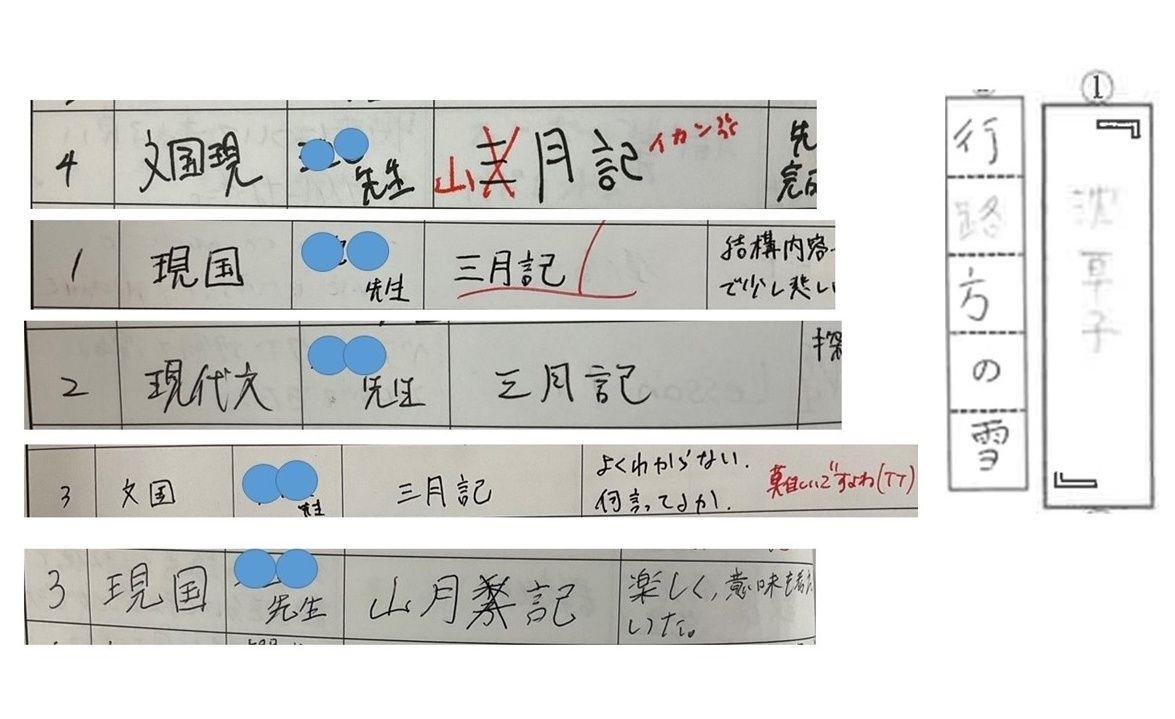 4 文国現 先生 山三月記 イカン 先
完成
1 現国 先生 三月記 結構内容
で少し悲しい
2 現代文 先生 三月記 探
3 文国 先生 三月記 よくわからない.
何言ってるか.
難しいですよね(TT)
3 現国 先生 山月記 楽しく,意味も
いった。
①
『沈草子』
行路方の雪